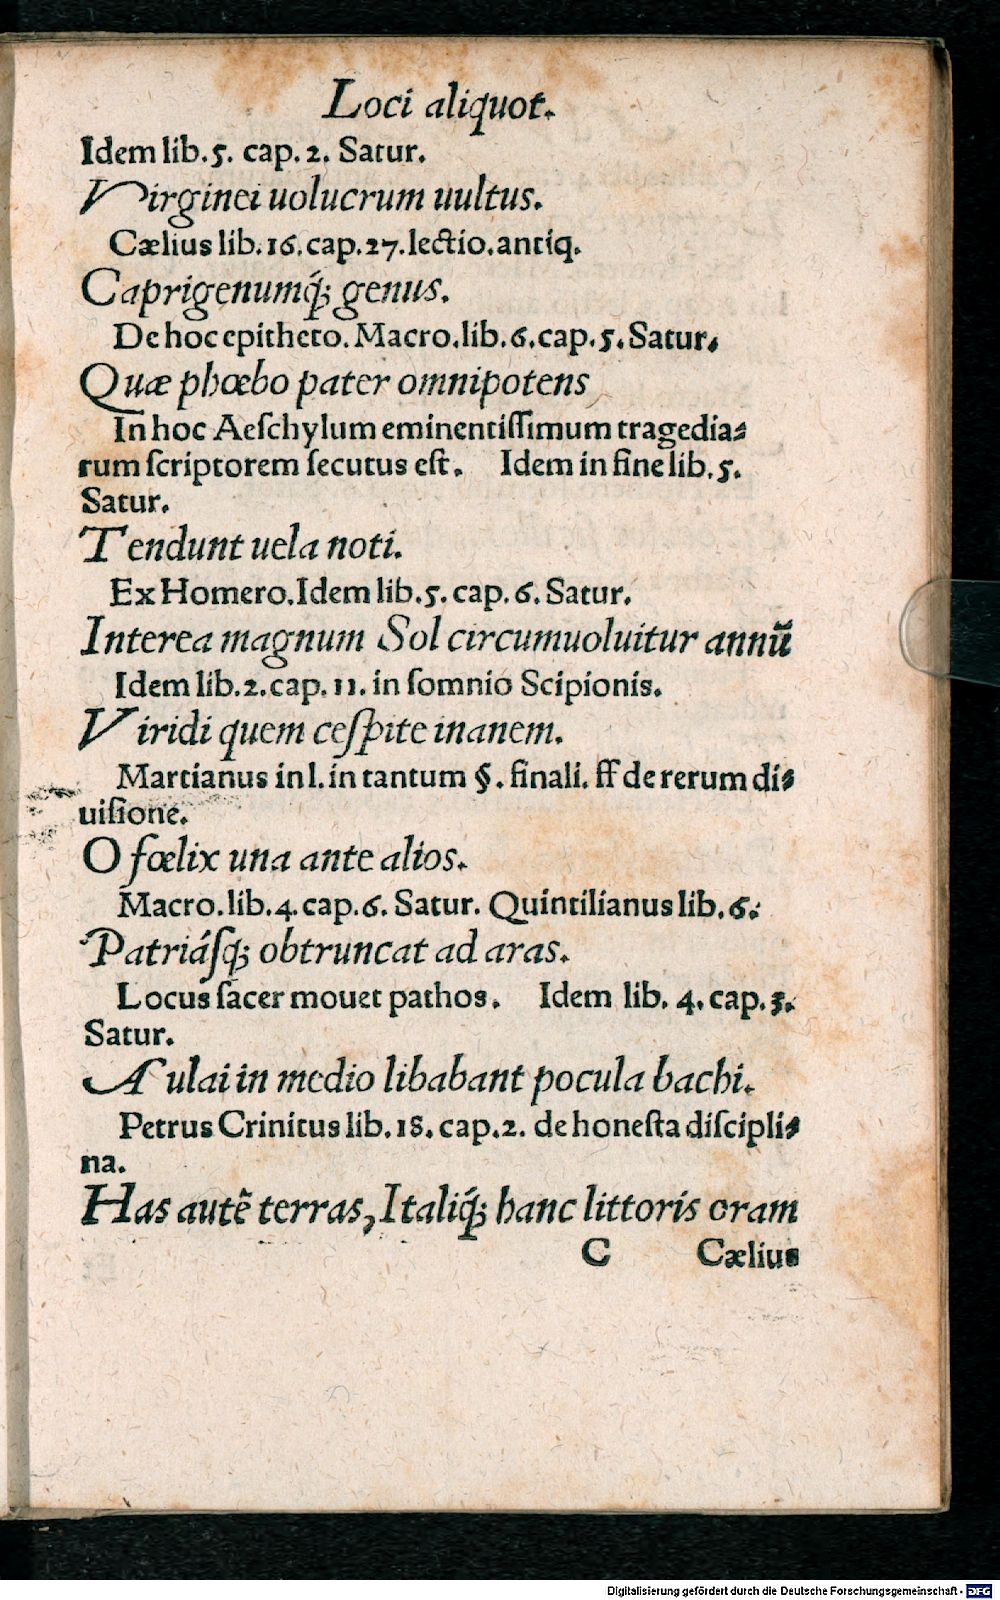 Loci aliquot.
Idem lib.5. cap.2. Satur.
Virginei uolucrum uultus.
Cælius lib.16.cap.27.lectio.antiq.
Caprigenumq́; genus.
De hoc epitheto. Macro.lib.6.cap.5.Satur.
Quæ phœbo pater omnipotens
In hoc Aeſchylum eminentiſſimum tragedia⸗
rum ſcriptorem ſecutus eſt. Idem in fine lib.5.
Satur.
Tendunt uela noti.
Ex Homero.Idem lib.5.cap.6.Satur.
Interea magnum Sol circumuoluitur annū
Idem lib.2.cap.11.in ſomnio Scipionis.
Viridi quem ceſpite inanem.
Martianus in l. in tantum §. finali. ff de rerum di⸗
uiſione.
O fœlix una ante alios.
Macro.lib.4.cap.6. Satur. Quintilianus lib.6.
Patriáſq; obtruncat ad aras.
Locus ſacer mouet pathos. Idem lib. 4. cap.3.
Satur.
Aulai in medio libabant pocula bachi.
Petrus Crinitus lib.18.cap.2. de honeſta diſcipli⸗
na.
Has autē terras, Italiq́; hanc littoris oram
C Cælius
Digitalisierung gefördert durch die Deutsche Forschungsgemeinschaft - DFG